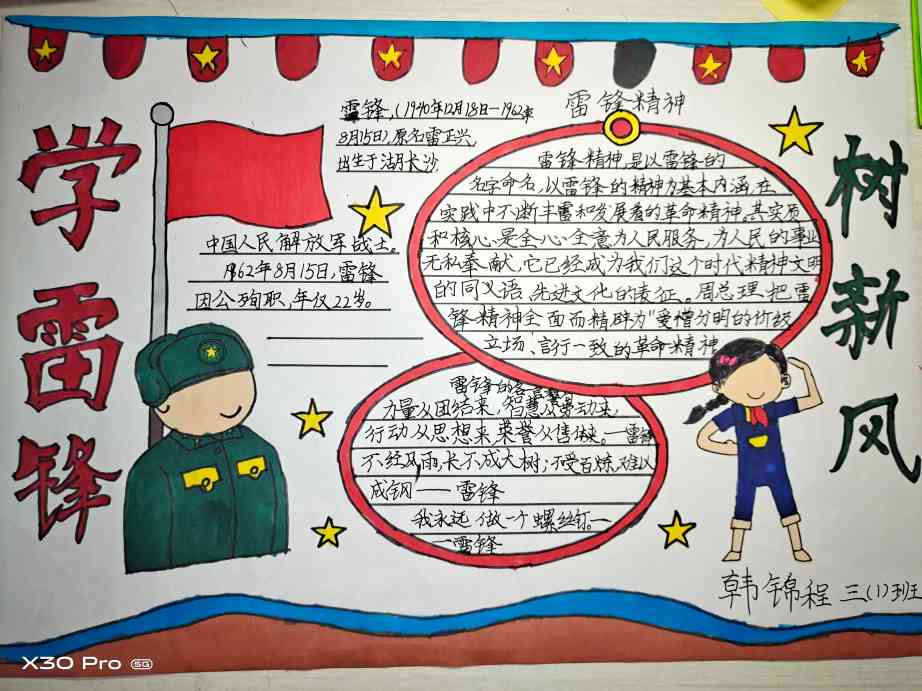 学雷锋
树新风
雷锋,(1940年12月18日—1962年
8月15日),原名雷正兴,
出生于湖长沙.
中国人民解放军战士。
1962年8月15日,雷锋
因公殉职,年仅22岁。
雷锋精神
雷锋精神,是以雷锋的
名字命名,以雷锋的精神为基本内涵,在
实践中不断丰富和发展着的革命精神,其实质
和核心是全心全意为人民服务,为人民的事业
无私奉献,它已经成为我们这个时代精神文明
的同义语,先进文化的表征。周总理把雷
锋精神全面而精辟为"爱憎分明的阶级
立场、言行一致的革命精神
雷锋的名言
力量从团结来,智慧从劳动来,
行动从思想来荣誉从集体来。—雷锋
不经风雨,长不成大树;不受百炼,难以
成钢——雷锋
我永远做一个螺丝钉。—
—雷锋
韩锦程 三(1)班
X30 Pro 5G